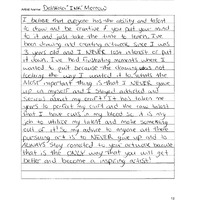 Artist Name: Delshano "Ink" Morrow
I believe that anyone has the ability and talent
to draw and be creative if you put your mind
to it and just take the time to learn. I've
been drawing and creating artwork since I was
5 years old and I NEVER lost interest or put
it down. I've had frustrating moments where I
wanted to quit because the drawing was not
looking the way I wanted it to, but the
most important thing is that I NEVER gave
up in myself and I stayed addicted and
serious about my craft! It has taken me
years to perfect my craft and the raw talent
that I have runs in my blood so it is my
job to utilize my talent and make something
out of it! So my advice to anyone out there
pursuing art is to NEVER give up and to
always stay commited to your artwork because
that is the ONLY way that you will get
better and become a inspiring artist!